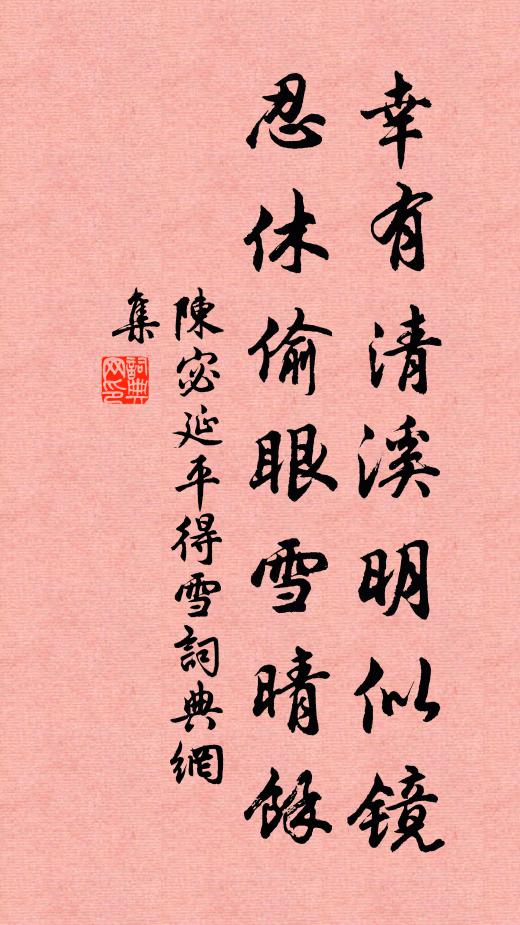 幸有清溪明似镜
忍休偷眼雪晴餘
陳宓延平得雪詞典網
集
詞典
网印